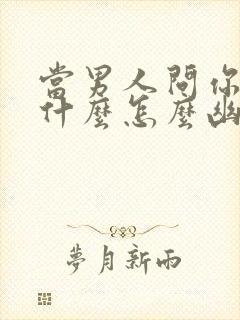 當男人問你
什麼怎麼幽
夢月新雨